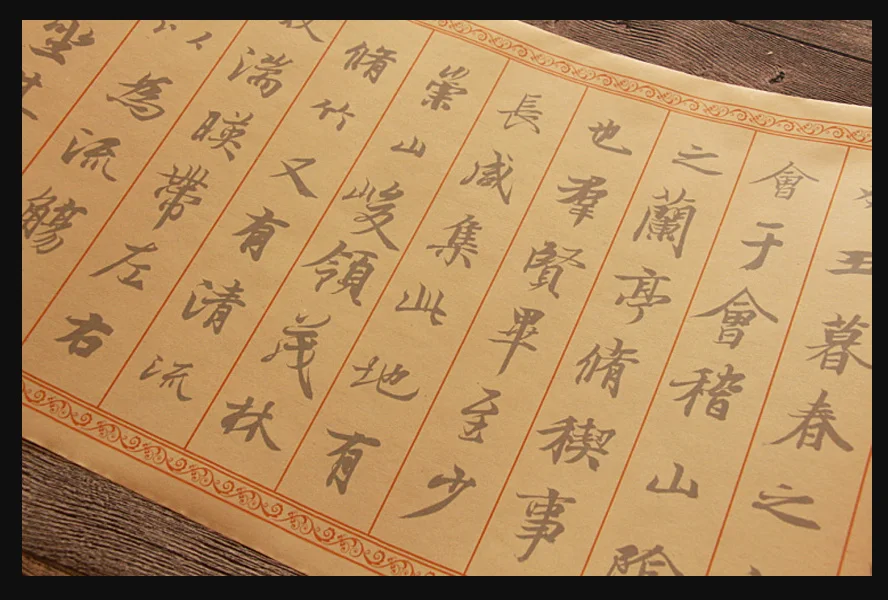 丑暮春之
會于會稽山陰
之蘭亭脩稧事
也羣賢畢至少
長咸集此地有
崇山峻領茂林
脩竹又有清流
激湍暎帶左右
以為流觴
坐其